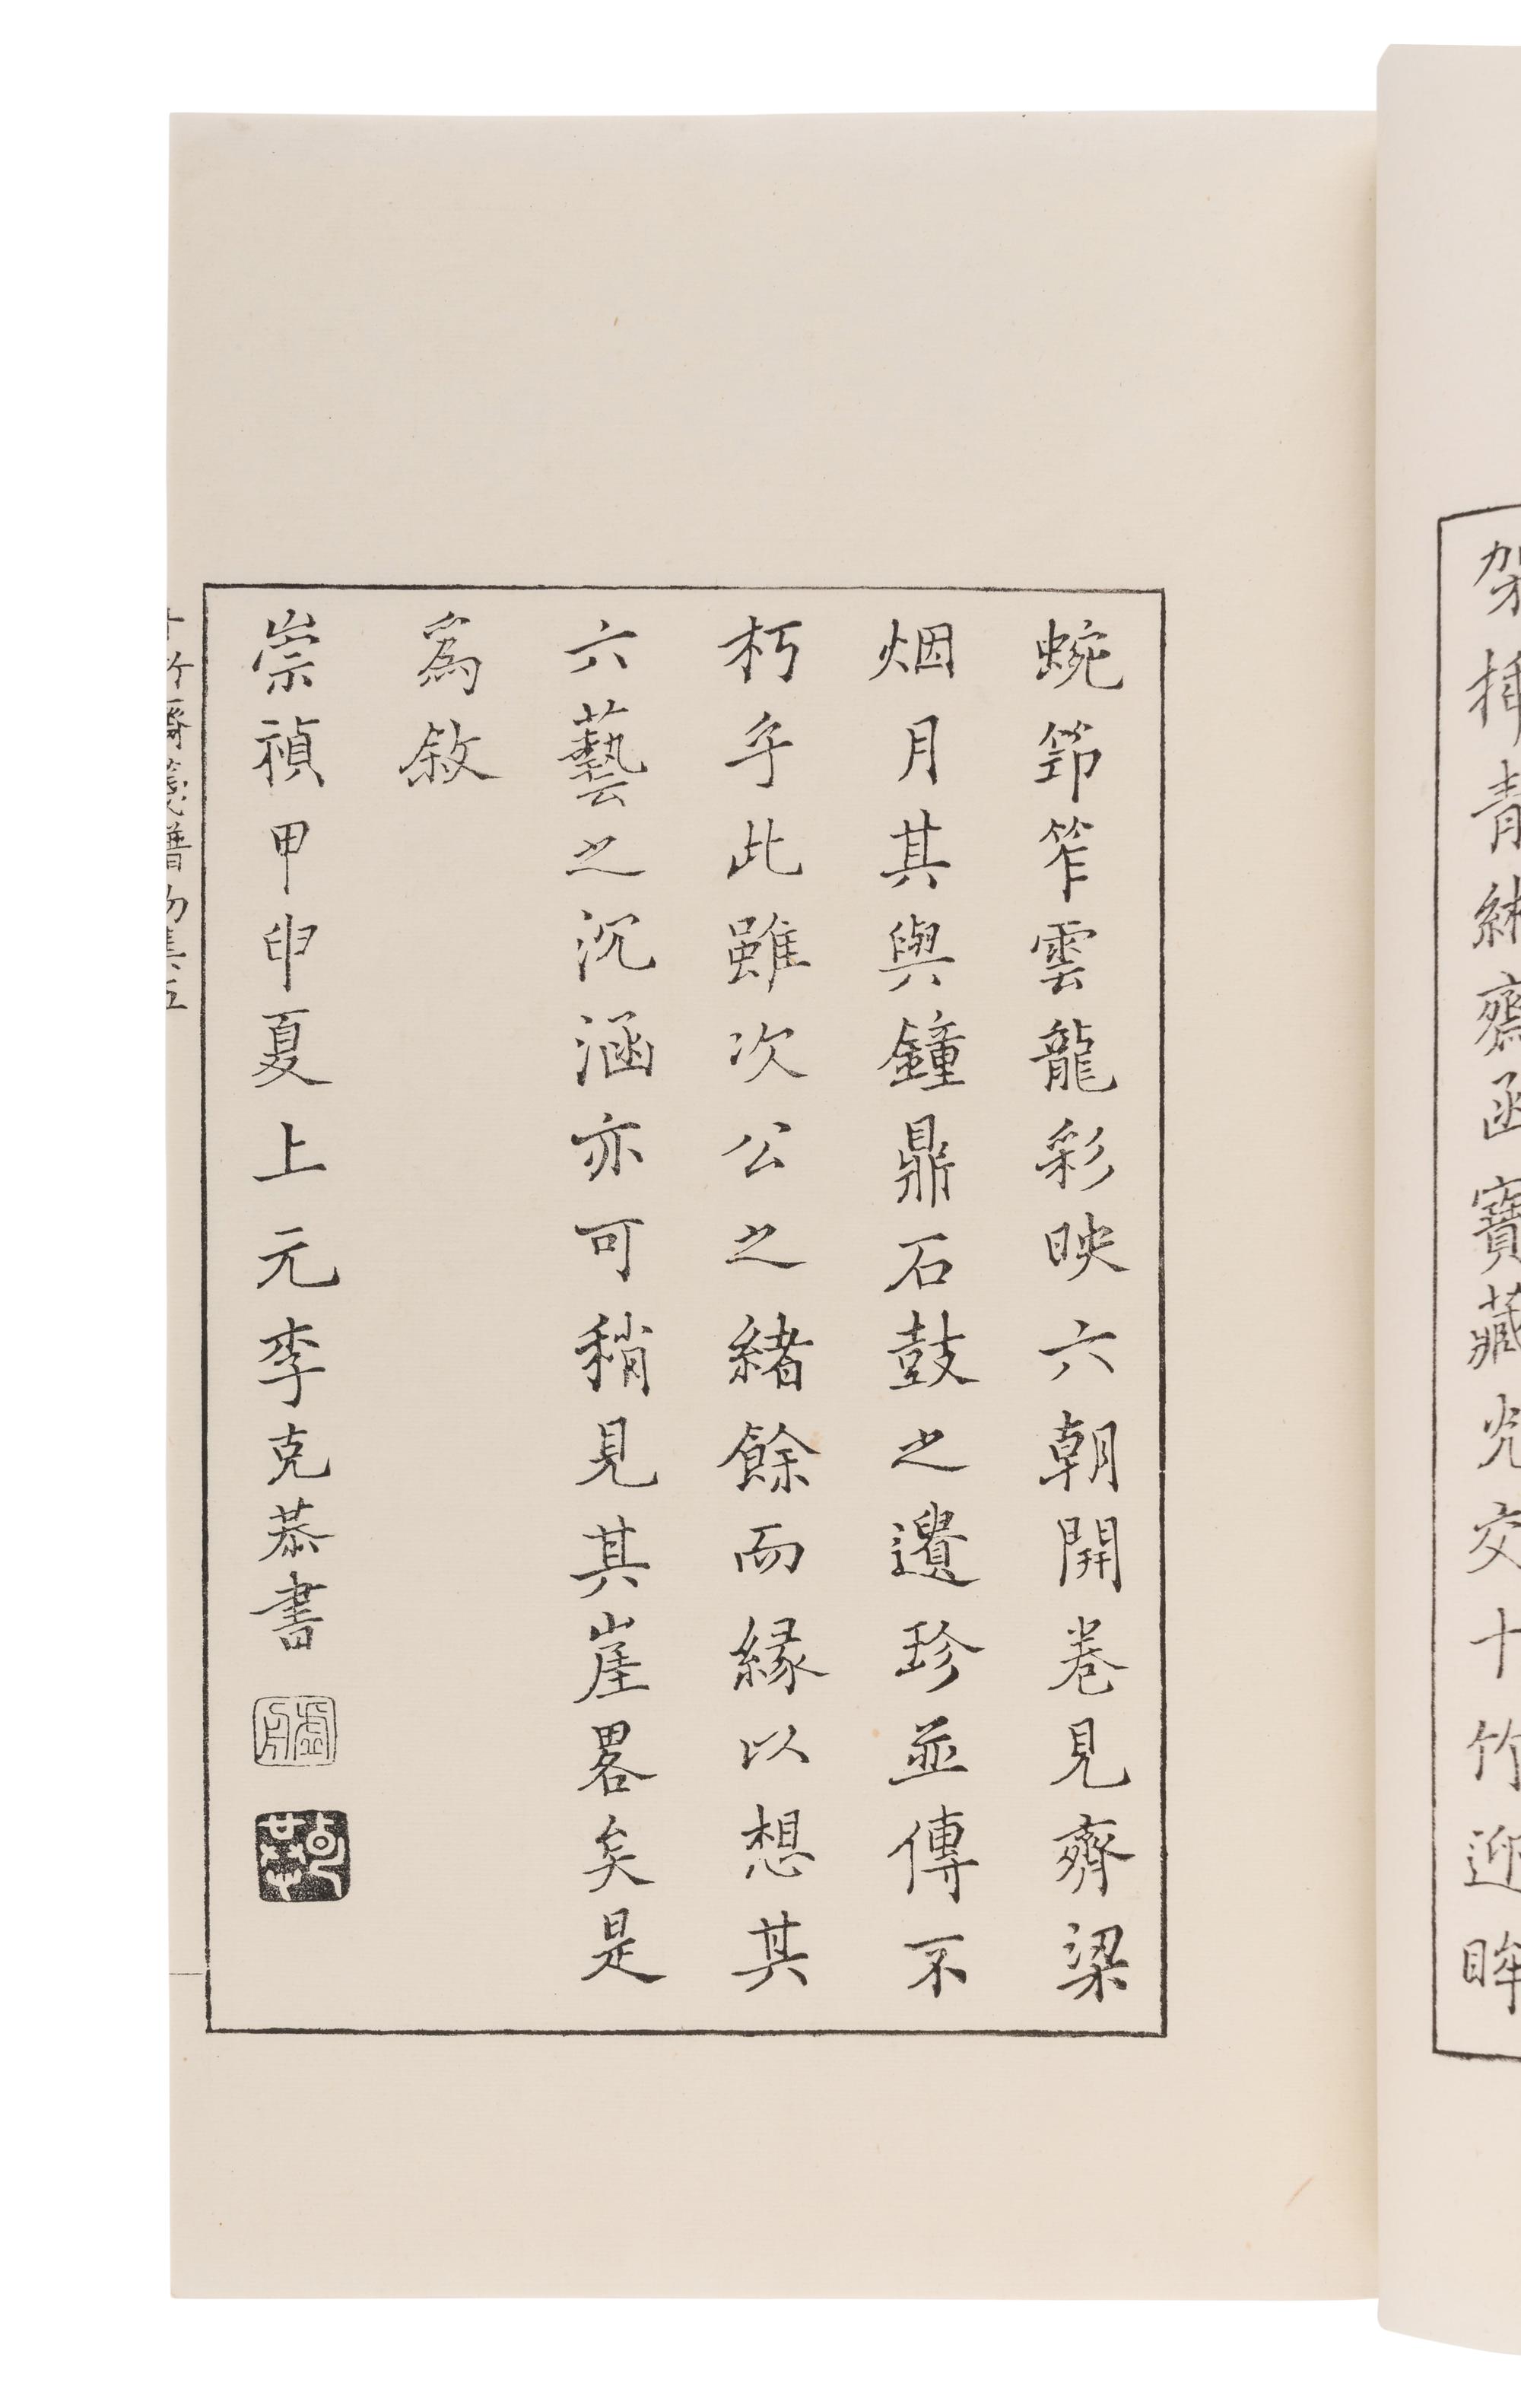 架插青緗齋函寶藏光交十竹迎眸
蜿笻笮雲龍彩映六朝開卷見齊梁
烟月其與鐘鼎石鼓之遺珍並傳不
朽乎此雖次公之緒餘而緣以想其
六藝之沉涵亦可稍見其崖畧矣是
為敘
崇禎甲申夏上元李克恭書
十竹齋箋譜初集五